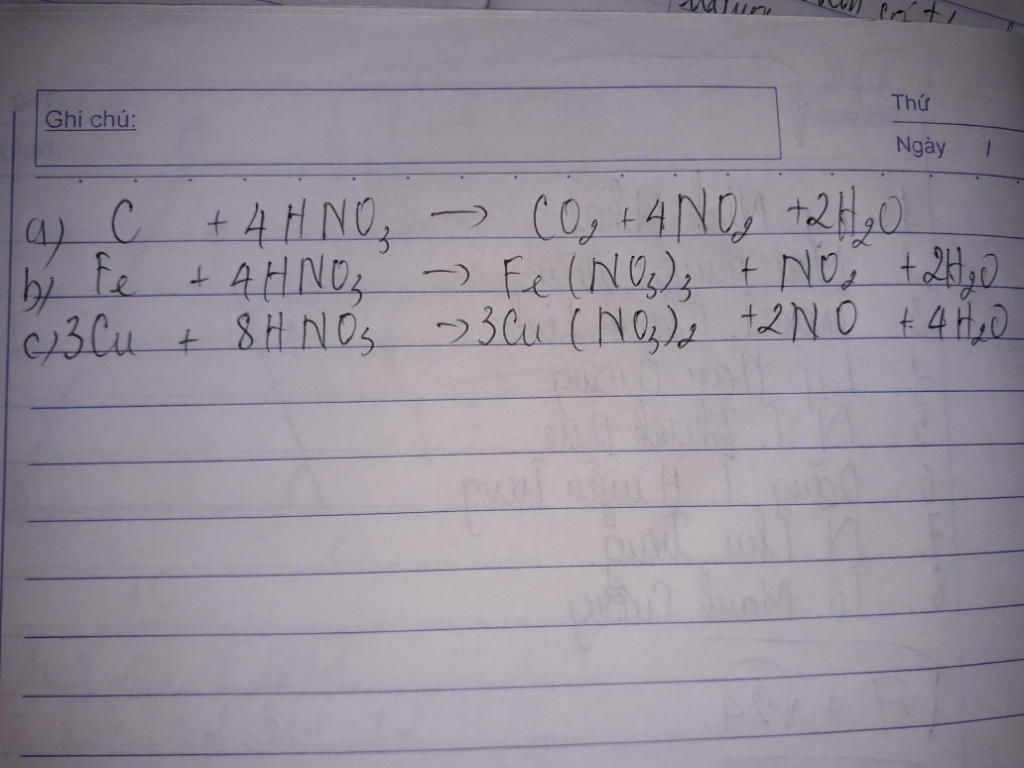 Thứ
Ghi chú:
Ngày /
a) C + 4HNO₃ → CO₂ + 4NO₂ + 2H₂O
b) Fe + 4HNO₃ → Fe(NO₃)₃ + NO₂ + 2H₂O
c) 3Cu + 8HNO₃ → 3Cu(NO₃)₂ + 2NO + 4H₂O